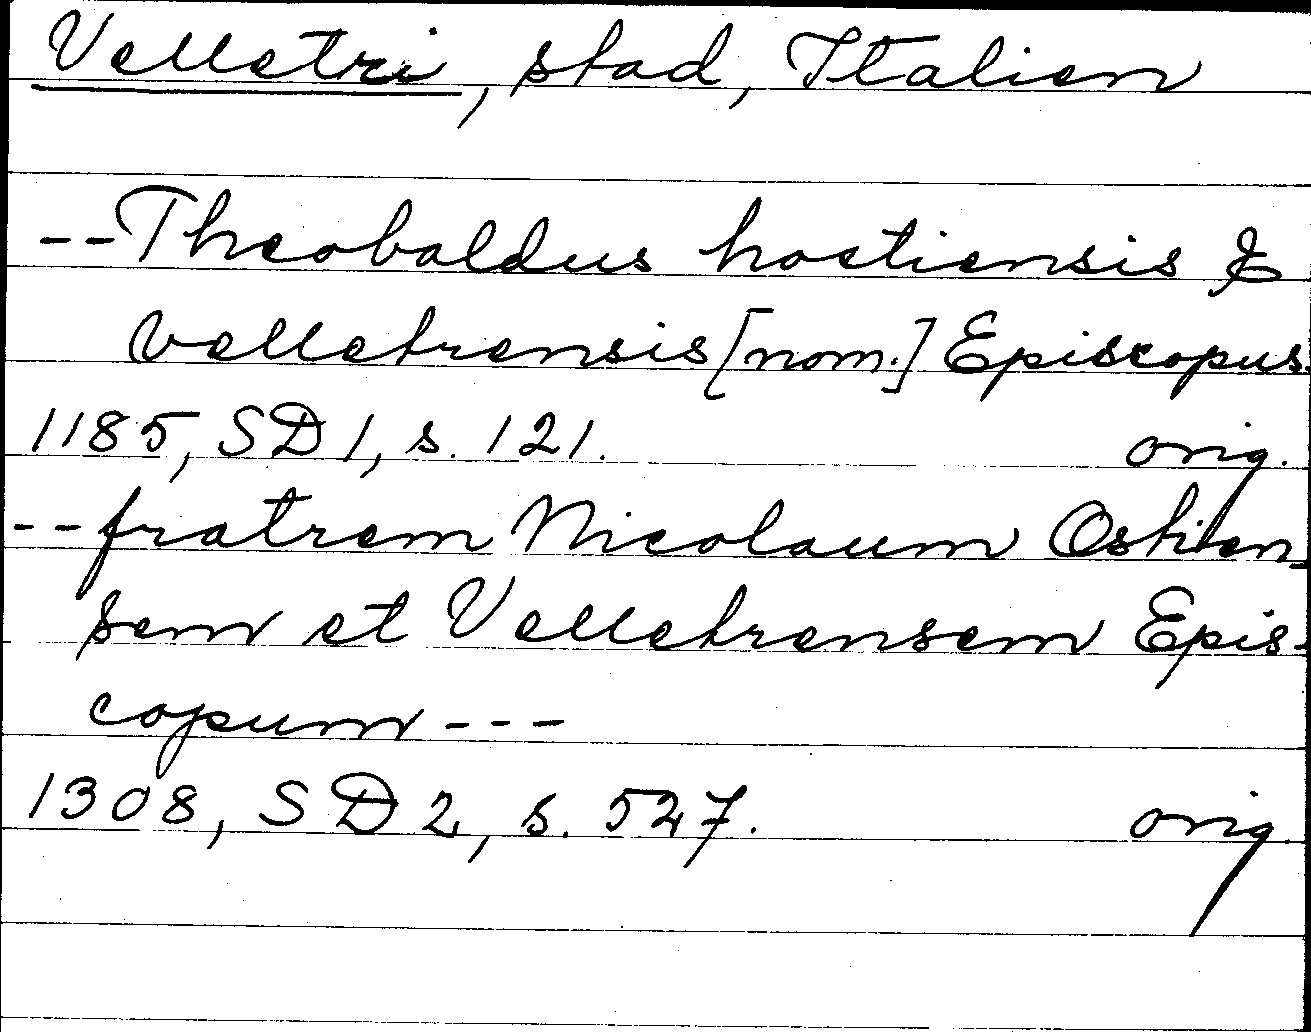 Velletri, stad, Italien
--Theobaldus hostiensis &
Velletrensis [nom.] Episcopus.
1185, SD 1, s. 121. orig.
--fratrem Nicolaum Ostien-
sem et Velletrensem Epis-
copum---
1308, SD 2, s. 527. orig.